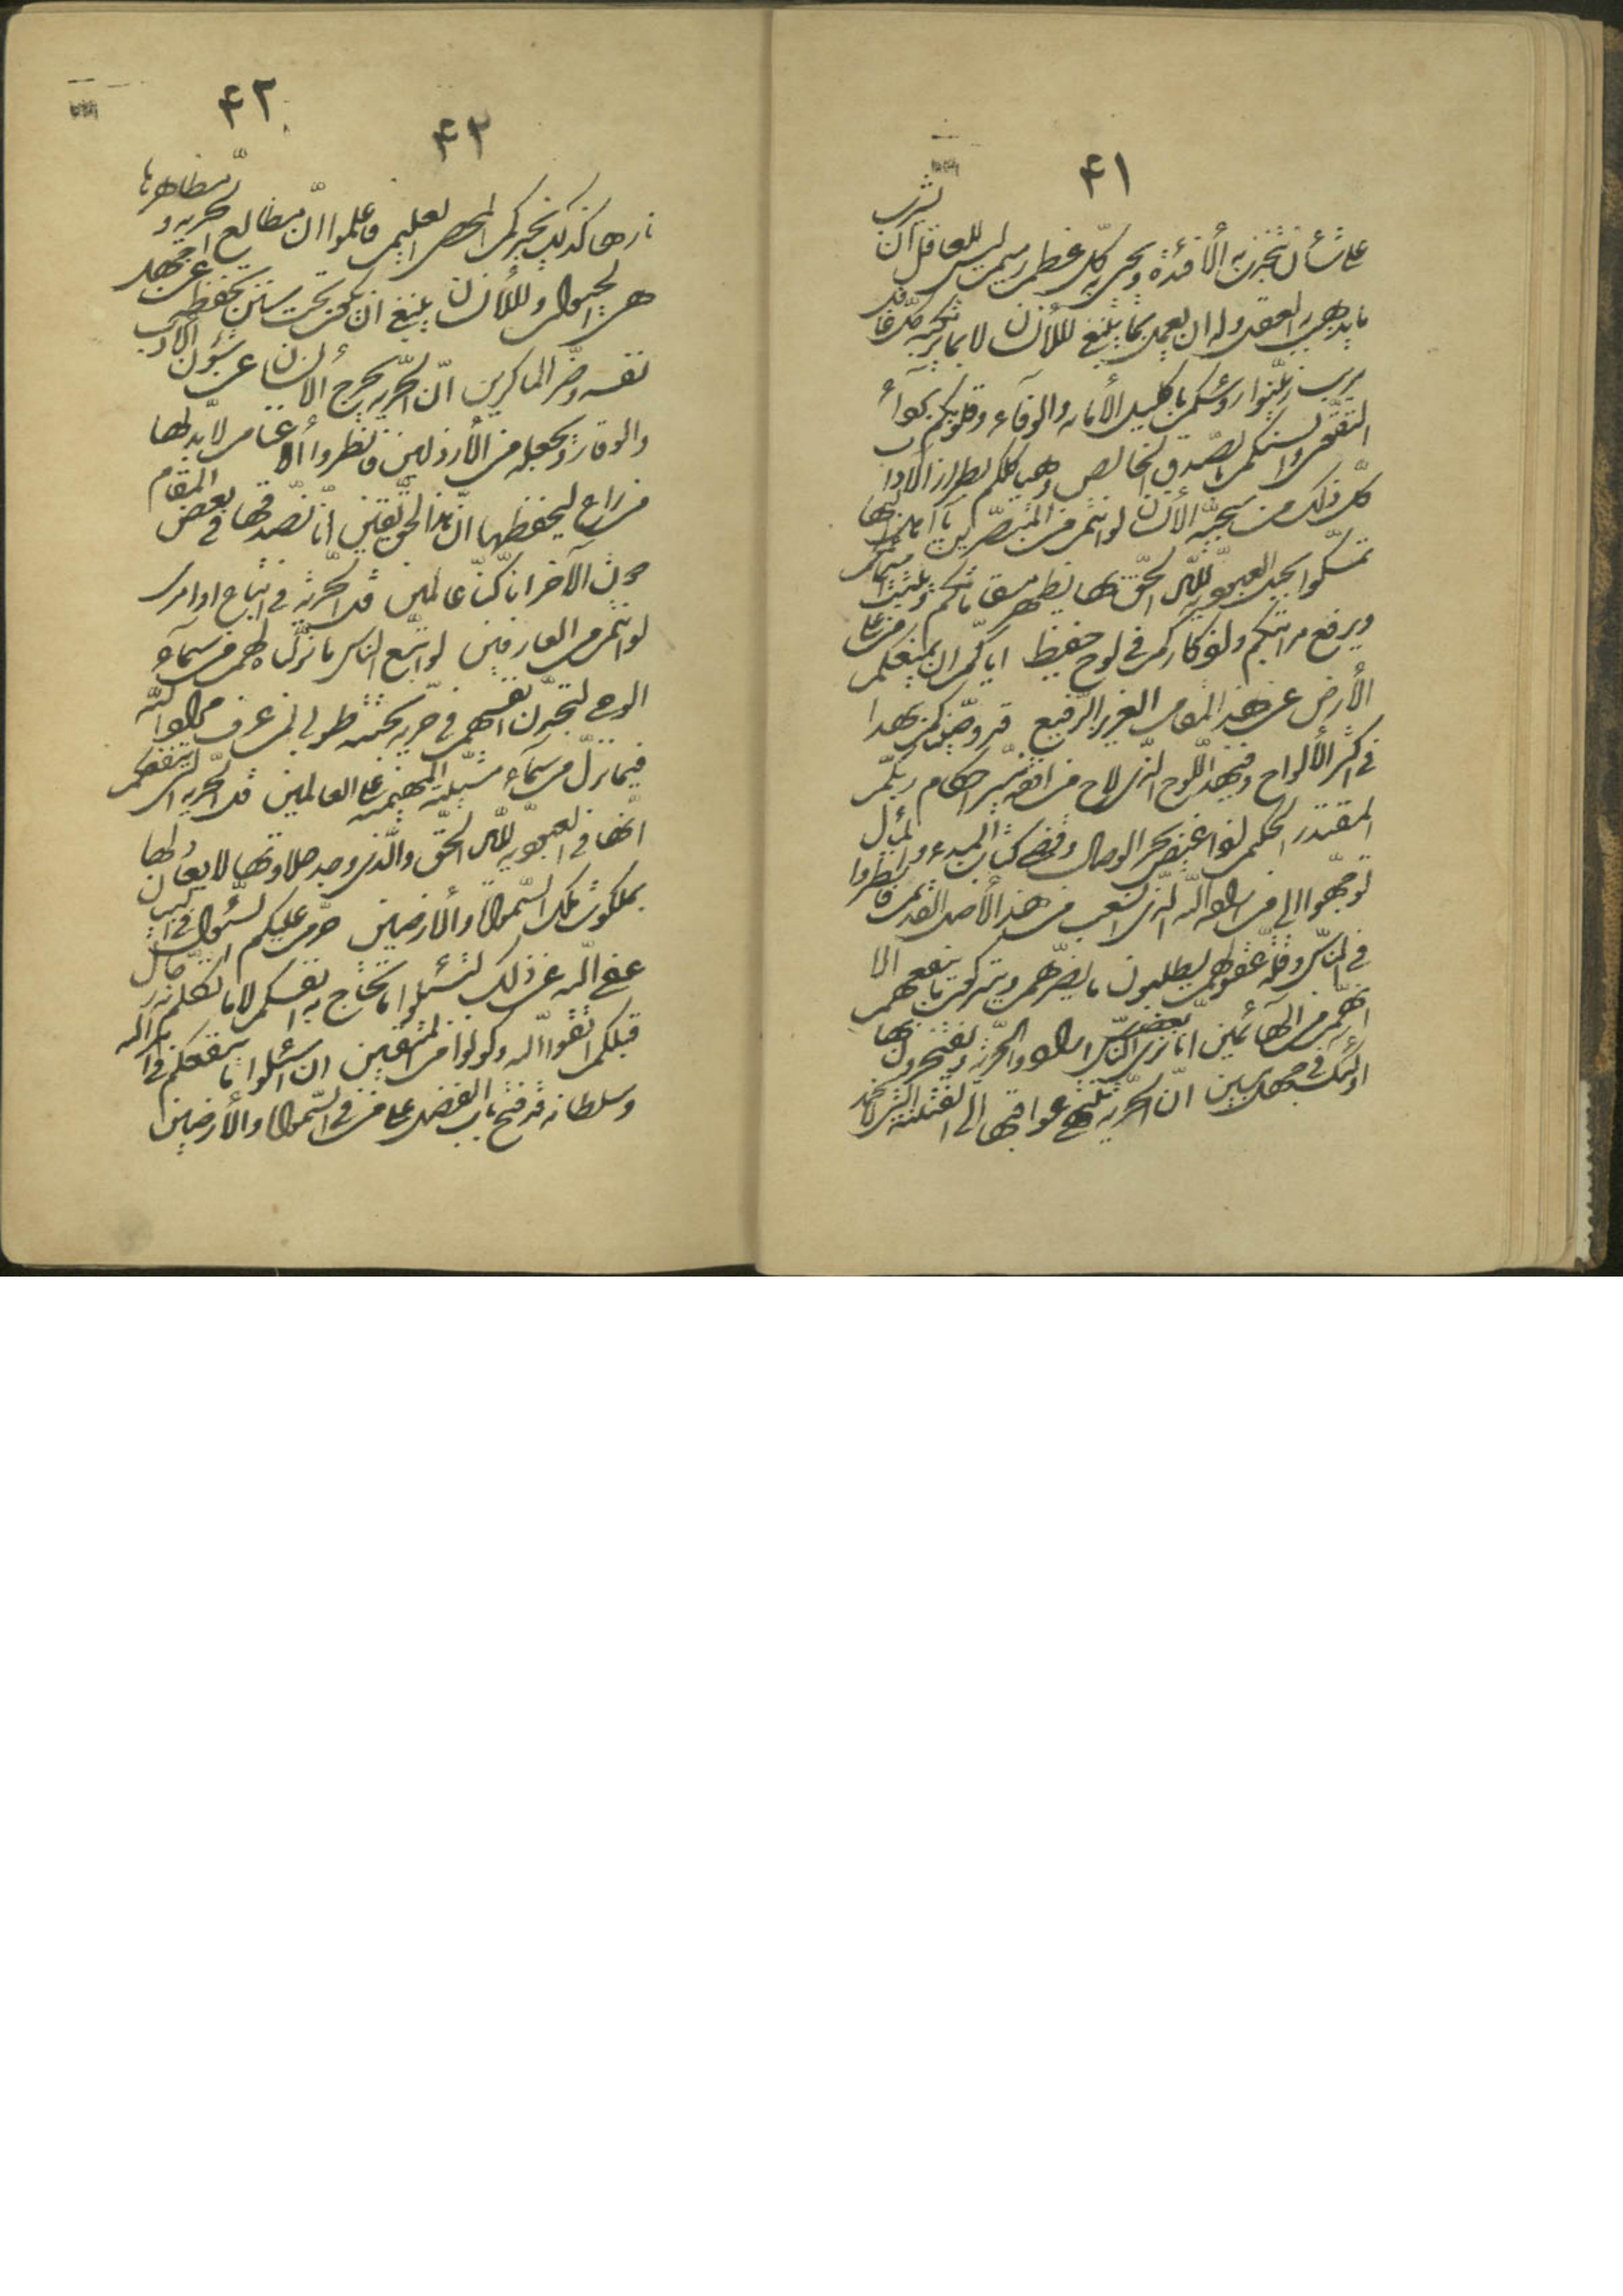 ۴۱
علی شأن تنجذب به الأفئدة و یحیی به کل عظم رمیم لیس للعاقل ان یشرب
ما یذهب به العقل و له ان یعمل بما ینبغی للأنسان لا ما یرتکبه کل غافل
مریب زینوا رؤسکم باکلیل الأمانة والوفآء و قلوبکم بردآء
التقوی و السنکم بالصدق الخالص و هیاکلکم بطراز الاداب
کل ذلک من سجیة الأنسان لو انتم من المتبصرین یا اهل البهآء
تمسکوا بحبل العبودیة لله الحق بها تظهر مقاماتکم و تثبت اسمائکم
و یرفع مراتبکم و اذکارکم فی لوح حفیظ ایاکم ان یمنعکم من علی
الأرض عن هذا المقام العزیز الرفیع قد وصیناکم بهذا
فی اکثر الألواح و فی هذا اللوح الذی لاح من افقه نیر احکام ربکم
المقتدر الحکیم اذا غیض بحر الوصال و قضی کتاب المبدء و المآل
توجهوا الی من اراده الله الذی انشعب من هذا الأصل القدیم فانظروا
فی الناس و قلة عقولهم یطلبون ما یضرهم و یترکون ما ینفعهم الا
انهم من الهآئمین انا نری بعض الناس ارادوا الحریة و یفتخرون بها
اولئک فی جهل مبین ان الحریة تنتهی عواقبها الی الفتنة التی لا تخمد
۴۲
۴۲
نارها کذلک یخبرکم المحصی العلیم فاعلموا ان مطالع الحریة و مظاهرها
هی الحیوان و للأنسان ینبغی ان یکون تحت سنن تحفظه عن جهل
نفسه و ضر الماکرین ان الحریة تخرج الأنسان عن شؤن الأدب
والوقار و تجعله من الأرذلین فانظروا الأغنام لا بد لها
من راع لیحفظها ان هذا لحق یقین انا نصدقها فی بعض المقام
دون الآخر انا کنا عالمین قل الحریة فی اتباع اوامری
لو انتم من العارفین لو اتبع الناس ما نزلناه لهم من سمآء
الوحی لتجدن انفسهم فی حریة بحتة طوبی لمن عرف مراد الله
فیما نزل من سمآء مشیته المهیمنة علی العالمین قل الحریة التی تنفعکم
انها فی العبودیة لله الحق والذی وجد حلاوتها لا یبدلها
بملکوت ملک السموات والأرضین حرم علیکم السؤال فی البیان
عفی الله عن ذلک لتسئلوا ما تحتاج به انفسکم لا ما تکلم به رجال
قبلکم اتقوا الله و کونوا من المتقین ان اسئلوا ما ینفعکم فی امر الله
و سلطانه قد فتح باب الفضل علی من فی السموات والأرضین